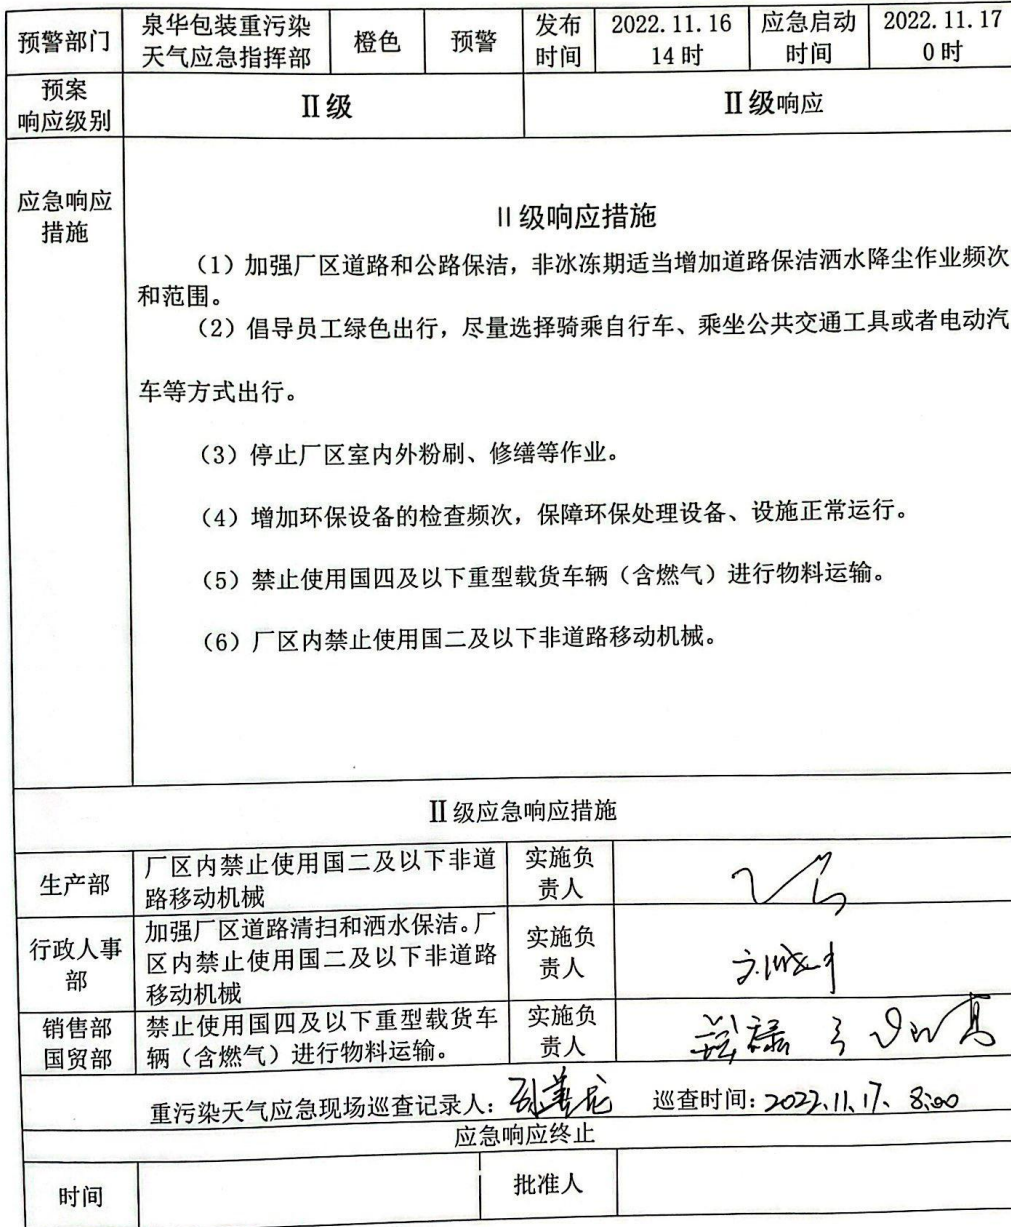 预警部门 泉华包装重污染天气应急指挥部 橙色 预警 发布时间 2022.11.16 14时 应急启动时间 2022.11.17 0时
预案响应级别 Ⅱ级 Ⅱ级响应
应急响应措施
Ⅱ级响应措施
（1）加强厂区道路和公路保洁，非冰冻期适当增加道路保洁洒水降尘作业频次
和范围。
（2）倡导员工绿色出行，尽量选择骑乘自行车、乘坐公共交通工具或者电动汽
车等方式出行。
（3）停止厂区室内外粉刷、修缮等作业。
（4）增加环保设备的检查频次，保障环保处理设备、设施正常运行。
（5）禁止使用国四及以下重型载货车辆（含燃气）进行物料运输。
（6）厂区内禁止使用国二及以下非道路移动机械。
Ⅱ级应急响应措施
生产部 厂区内禁止使用国二及以下非道路移动机械 实施负责人
行政人事部 加强厂区道路清扫和洒水保洁。厂区内禁止使用国二及以下非道路移动机械 实施负责人
销售部国贸部 禁止使用国四及以下重型载货车辆（含燃气）进行物料运输。 实施负责人
重污染天气应急现场巡查记录人： 巡查时间：2022.11.17、8:00
应急响应终止
时间 批准人